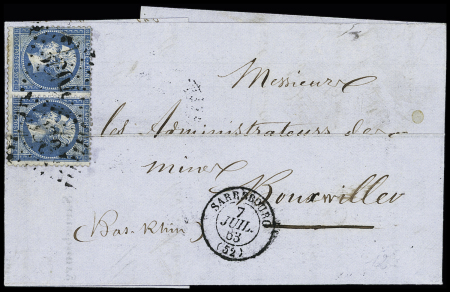 Messieurs
les Administrateurs des
mines
Bouxwiller
(Bas-Rhin)
SARREBOURG
7
JUIL.
63
(52)